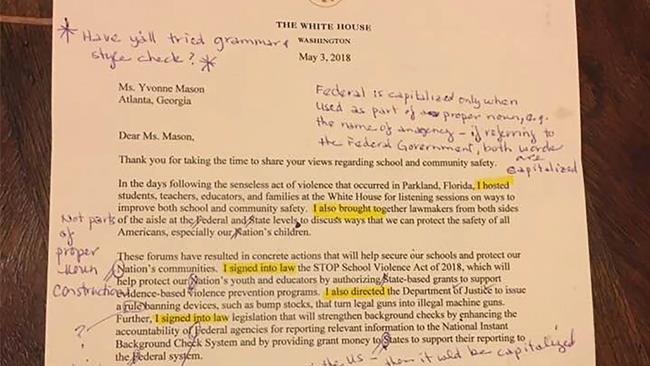 THE WHITE HOUSE
* Have y'all tried grammar &
style check? *
WASHINGTON
May 3, 2018
Ms. Yvonne Mason
Atlanta, Georgia
Federal is capitalized only when
used as part of a proper noun, e.g.
the name of an agency – if referring to
the Federal Government, both words
are
capitalized
Dear Ms. Mason,
Thank you for taking the time to share your views regarding school and community safety.
In the days following the senseless act of violence that occurred in Parkland, Florida, I hosted
students, teachers, educators, and families at the White House for listening sessions on ways to
improve both school and community safety. I also brought together lawmakers from both sides
of the aisle at the Federal and State levels to discuss ways that we can protect the safety of all
Americans, especially our Nation's children.
Not parts
of
proper
noun
construction
These forums have resulted in concrete actions that will help secure our schools and protect our
Nation's communities. I signed into law the STOP School Violence Act of 2018, which will
help protect our Nation's youth and educators by authorizing State-based grants to support
evidence-based violence prevention programs. I also directed the Department of Justice to issue
a rule banning devices, such as bump stocks, that turn legal guns into illegal machine guns.
?
Further, I signed into law legislation that will strengthen background checks by enhancing the
accountability of Federal agencies for reporting relevant information to the National Instant
Background Check System and by providing grant money to States to support their reporting to
the Federal system.
the US – then it would be capitalized